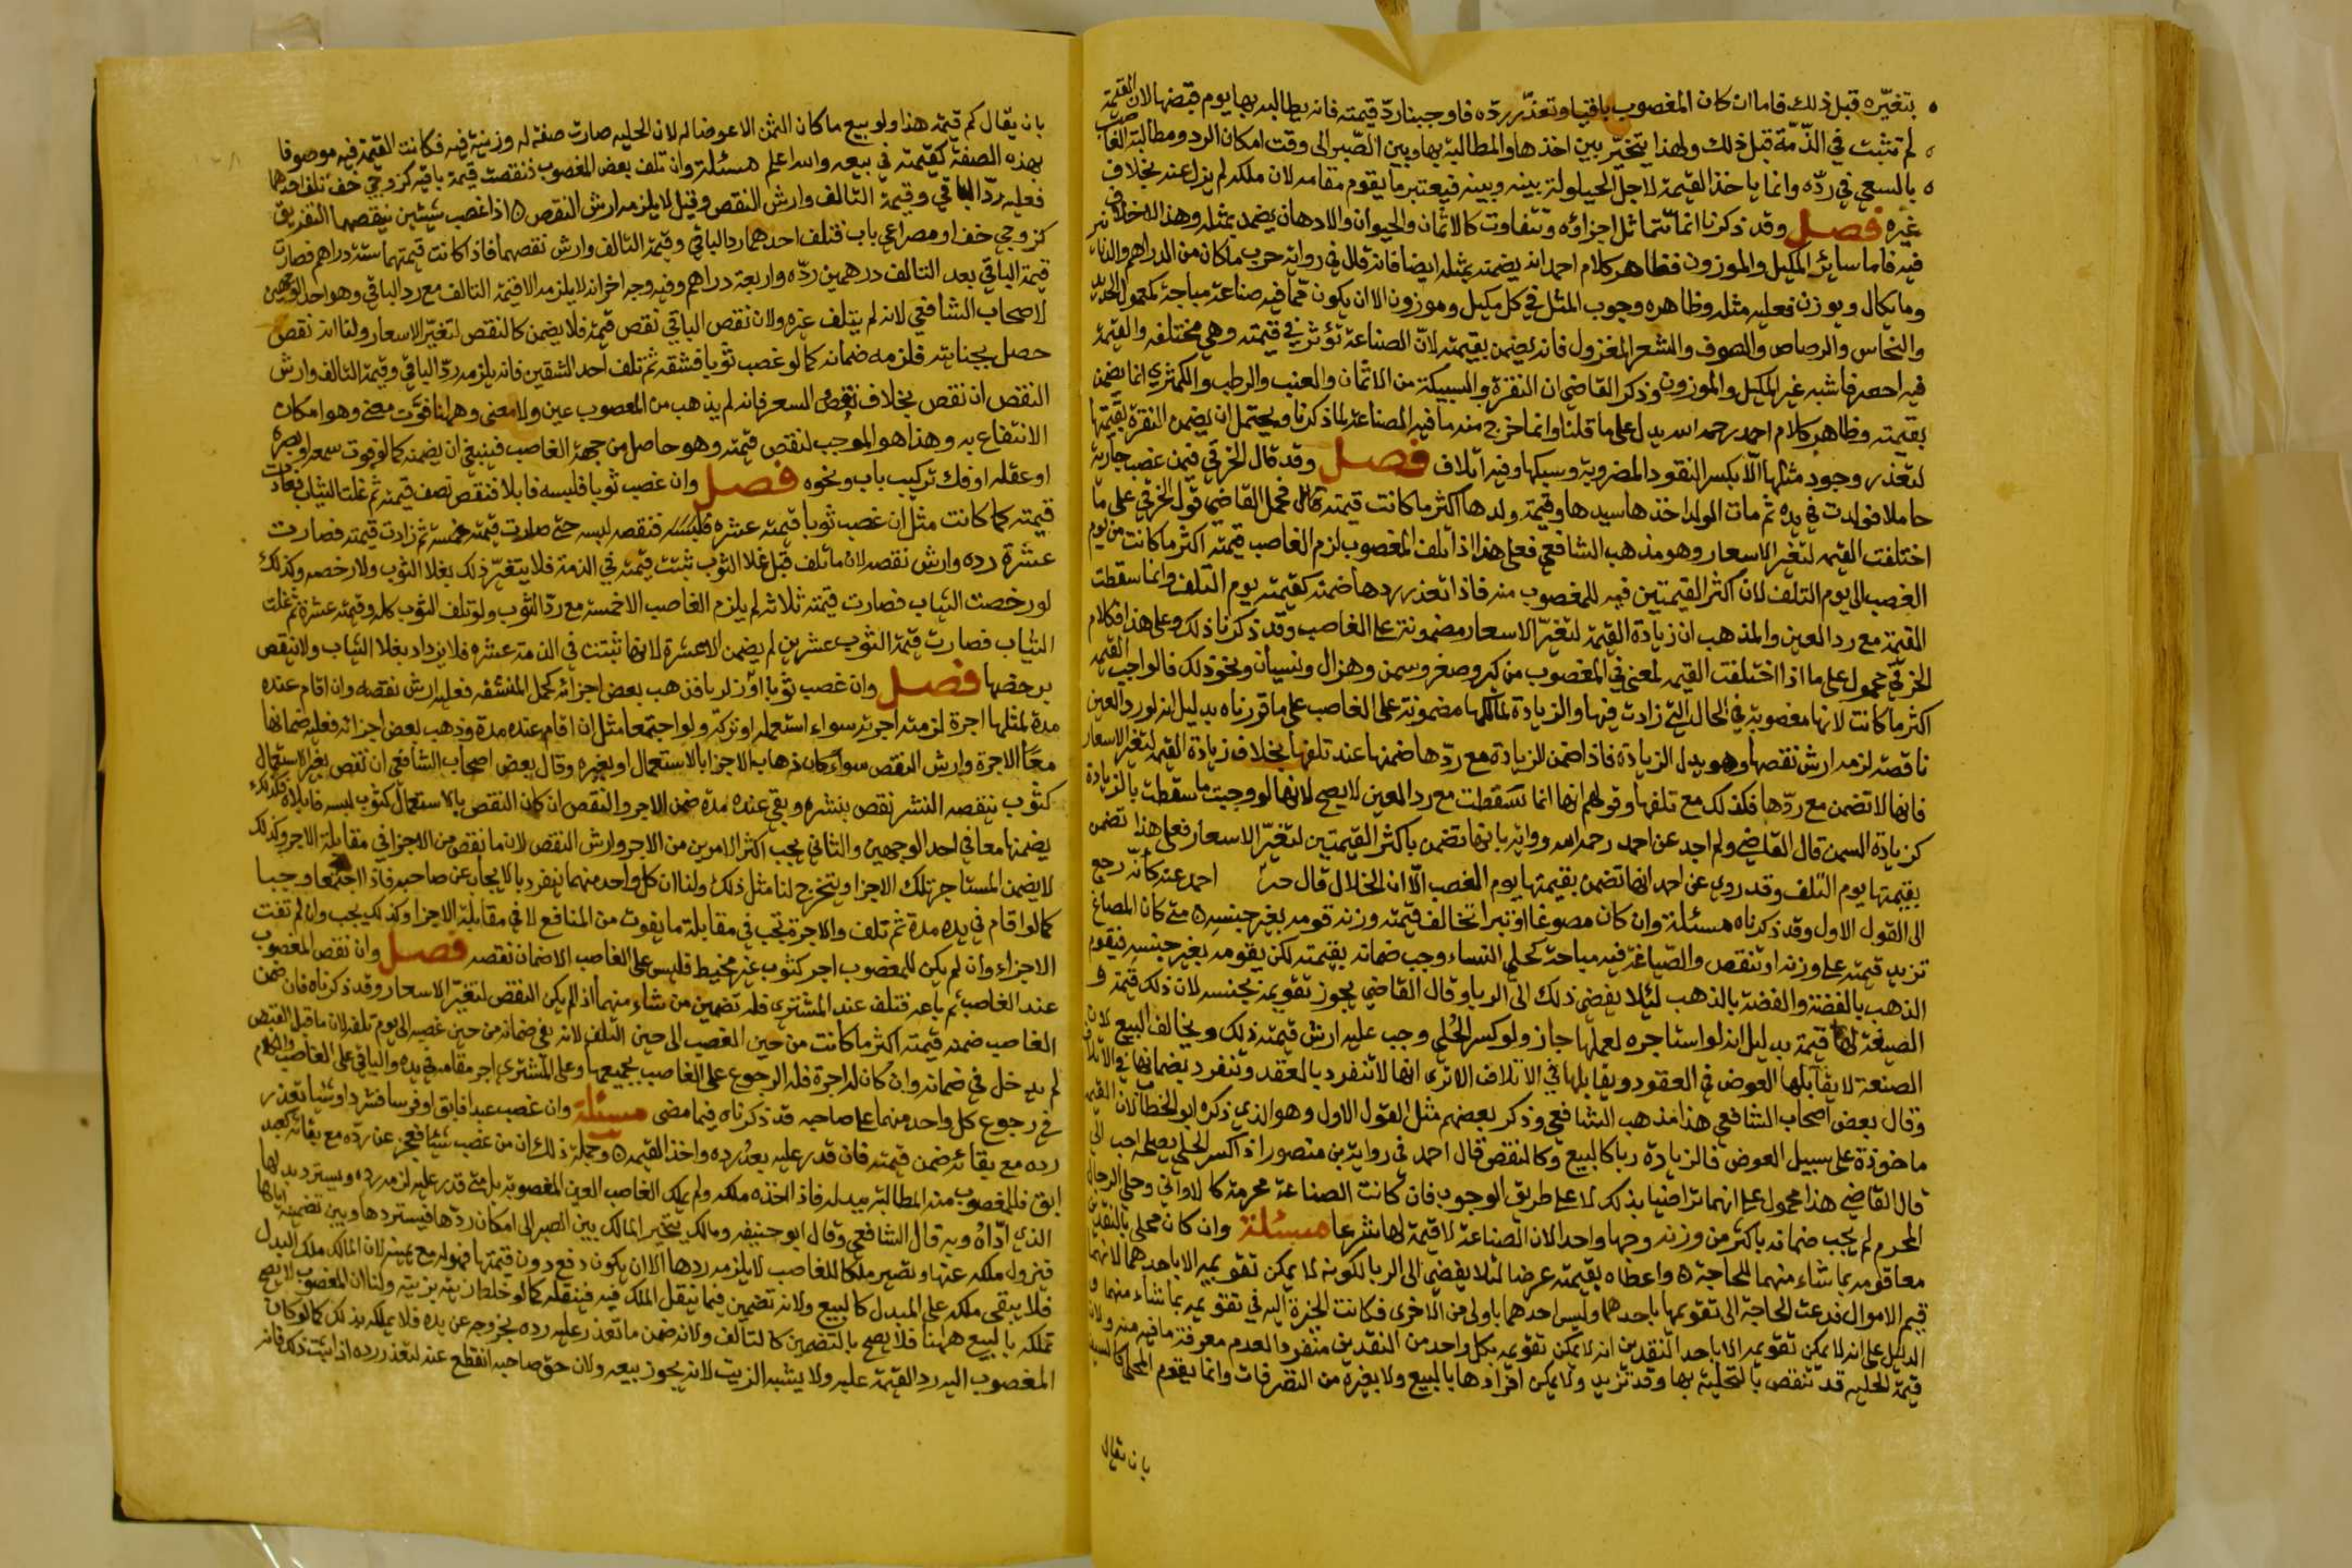 بتغيّره قبل ذلك فاما ان كان المغصوب باقيا وتعذّر ردّه فاوجبنا ردّ قيمته فانه يطالبه بها يوم قبضها لان القيمة
لم تثبت في الذّمّة قبل ذلك ولهذا يتخيّر بين اخذها والمطالبة بها وبين الصّبر الى وقت امكان الرد ومطالبة الغاصب
بالسعي في ردّه وانما ياخذ القيمة لاجل الحيلولة بينه وبينه فيعتبر ما يقوم مقامه لان ملكه لم يزل عنه بخلاف
غيره فصل وقد ذكرنا انما تتماثل اجزاؤه وتتفاوت كالاثمان والحبوب والادهان يضمن بمثله وهذا لا خلاف
فيه فاما سائر المكيل والموزون فظاهر كلام احمد انه يضمنه بمثله ايضا فانه قال في رواية حرب ما كان من الدراهم والدنانير
وما يكال ويوزن فعليه مثله وظاهره وجوب المثل في كل مكيل وموزون الا ان يكون ممّا فيه صناعة مباحة كمعمول الحديد
والنحاس والرصاص والصوف والشعر المغزول فانه يضمن بقيمته لانّ الصناعة تؤثر في قيمته وهي مختلفه والقيمة
فيه احصر فاشبه غير المكيل والموزون وذكر القاضي ان النقرة والسبيكة من الاثمان والعنب والرطب والكمثري انما يضمن
بقيمته وظاهر كلام احمد رحمه الله يدل على ما قلنا وانما خرج منه ما فيه الصناعة لما ذكرنا ويحتمل ان يضمن النقرة بقيمتها
لتعذر وجود مثلها الّا بكسر النقود المضروبة وسبكها وفيه اتلاف فصل وقد قال الخرقي فيمن غصب جارية
حاملا فولدت في يده ثم مات الولد اخذها سيدها وقيمة ولدها اكثر ما كانت قيمته فحمل القاضي قول الخرقي على ما
اختلفت القيمه لتغير الاسعار وهو مذهب الشافعي فعلى هذا اذا تلف المغصوب لزم الغاصب قيمته اكثر ما كانت من يوم
الغصب الى يوم التلف لان اكثر القيمتين فيه للمغصوب منه فاذا تعذر ردها ضمنه كقيمته يوم التلف وانما سقطت
القيمة مع رد العين والمذهب ان زيادة القيمة لتغيّر الاسعار مضمونة على الغاصب وقد ذكرنا ذلك وعلى هذا فكلام
الخرقي محمول على ما اذا اختلفت القيمه لمعنى في المغصوب من كبر وصغر وسمن وهزال ونسيان ونحو ذلك فالواجب القيمه
اكثر ما كانت لانها مغصوبة في الحال التي زادت فيها والزيادة لمالكها مضمونة على الغاصب على ما قررناه بدليل انه لو رد العين
ناقصة لزمه ارش نقصها وهو بدل الزيادة فاذا ضمن الزيادة مع ردّها ضمنها عند تلفها بخلاف زيادة القيمه لتغير الاسعار
فانها لا تضمن مع ردّها فكذلك مع تلفها وقولهم انها انما سقطت مع رد العين لا يصح لانها لو وجبت ما سقطت بالرد كزيادة
كزيادة السمن قال القاضي ولم اجد عن احمد رحمه الله رواية بانها تضمن باكثر القيمتين لتغيّر الاسعار فعلى هذا تضمن
بقيمتها يوم التلف وقد روي عن احمد انها تضمن بقيمتها يوم الغصب الّا ان الخلال قال احمد عنه كأنّه رجع
الى القول الاول وقد ذكرناه مسئلة وان كان مصوغا او تبرا تخالف قيمته وزنه قومه بغير جنسه متى كان المصاغ
تزيد قيمته على وزنه او تنقص والصّياغة فيه مباحة كحلي النساء وجب ضمانه بقيمته لكن يقومه بغير جنسه فيقوم
الذهب بالفضة والفضة بالذهب لئلا يفضي ذلك الى الربا وقال القاضي يجوز تقويمه بجنسه لان ذلك قيمته و
الصنعة لها قيمة بدليل انه لو استاجره لعملها جاز ولو كسر الحُلي وجب عليه ارش قيمته ذلك ويخالف البيع لان
الصنعة لا يقابلها العوض في العقود ويقابلها في الاتلاف الا ترى انها لا تنفرد بالعقد وتنفرد بضمانها في الاتلاف
وقال بعض اصحاب الشافعي هذا مذهب الشافعي وذكر بعضهم مثل القول الاول وهو الذي ذكره ابو الخطاب لان القيمه
ماخوذة على سبيل العوض فالزيادة ربا كالبيع وكالنقص قال احمد في رواية بن منصور اذا كسر الحلي يصلحه احب الى
قال القاضي هذا محمول على انهما تراضيا بذلك لا على طريق الوجوب فان كانت الصناعة محرمة كالاواني وحلي الرجال
المحرم لم يجب ضمانه باكثر من وزنه وجها واحدا لان الصناعة لا قيمة لها شرعا مسئلة وان كان محلى بالنقدين
معا قومه بما شاء منهما للحاجة واعطاه بقيمته عرضا لئلا يفضي الى الربا لكونه لا يمكن تقويمه الا باحدهما لانهما
قيم الاموال فدعت الحاجة الى تقويمها باحدهما وليس احدهما باولى من الاخرى فكانت الخيرة اليه في تقويمه بما شاء منهما و
الدليل على انه لا يمكن تقويمه الا باحد النقدين انه لا يمكن تقويمه بكل واحد من النقدين منفردا لعدم معرفة ما فيه منه ولان
قيمة الحلية قد تنقص بالتحلية بها وقد تزيد ولا يمكن افرادها بالبيع ولا بغيره من التصرفات وانما يقوم المحلى كالسيف
بان يقال
بان يقال كم قيمة هذا ولو بيع ما كان الثمن الا عوضا له لان الحلية صارت صفة له وزينة فيه فكانت القيمة فيه موصوفا
بهذه الصفة كقيمته في بيعه والله اعلم مسئلة وان تلف بعض المغصوب فنقصت قيمة باقيه كزوجي خف تلف احدهما
فعليه ردّ الباقي وقيمة التالف وارش النقص وقيل لا يلزمه ارش النقص اذا غصب شيئين ينقصهما التفريق
كزوجي خف او مصراعي باب فتلف احدهما رد الباقي وقيمة التالف وارش نقصهما فاذا كانت قيمتهما ستة دراهم فصارت
قيمة الباقي بعد التالف درهمين ردّه واربعة دراهم وفيه وجه اخر انه لا يلزمه الا قيمة التالف مع رد الباقي وهو احد الوجهين
لاصحاب الشافعي لانه لم يتلف غيره ولان نقص الباقي نقص قيمة فلا يضمن كالنقص لتغيّر الاسعار ولنا انه نقص
حصل بجنايته فلزمه ضمانه كما لو غصب ثوبا فشقه ثم تلف احد الشقين فانه يلزمه ردّ الباقي وقيمة التالف وارش
النقص ان نقص بخلاف نقص السعر فانه لم يذهب من المغصوب عين ولا معنى وههنا فوّت معنى وهو امكان
الانتفاع به وهذا هو الموجب لنقص قيمته وهو حاصل من جهة الغاصب فينبغي ان يضمنه كما لو فوت سمعه او بصره
او عقله او فك تركيب باب ونحوه فصل وان غصب ثوبا فلبسه فابلاه فنقص نصف قيمته ثم غلت الثياب فعادت
قيمته كما كانت مثل ان غصب ثوبا قيمته عشره فلبسه فنقصه لبسه حتى صارت قيمته خمسة ثم زادت قيمته فصارت
عشرة رده وارش نقصه لان ما تلف قبل غلا الثوب ثبتت قيمته في الذمة فلا يتغيّر ذلك بغلا الثوب ولا رخصه وكذلك
لو رخصت الثياب فصارت قيمته ثلاثة لم يلزم الغاصب الا خمسة مع ردّ الثوب ولو تلف الثوب كله وقيمته عشرة ثم غلت
الثياب فصارت قيمة الثوب عشرين لم يضمن الا عشرة لانها ثبتت في الذمة عشره فلا يزداد بغلا الثياب ولا تنقص
برخصها فصل وان غصب ثوبا او زليا فذهب بعض اجزائه كخمل المنشفه فعليه ارش نقصه وان اقام عنده
مدة لمثلها اجرة لزمته اجرته سواء استعمله او تركه ولو اجتمعا مثل ان اقام عنده مدة وذهب بعض اجزائه فعليه ضمانها
معًا الاجرة وارش النقص سواء كان ذهاب الاجزا بالاستعمال او بغيره وقال بعض اصحاب الشافعي ان نقص بغير الاستعمال
كثوب ينقصه النشر نقص بنشره وبقي عنده مدة ضمن الاجر والنقص ان كان النقص بالاستعمال كثوب لبسه فابلاه فكذلك
يضمنها معا في احد الوجهين والثاني يجب اكثر الامرين من الاجر وارش النقص لان ما نقص من الاجزا في مقابلة الاجر وكذلك
لا يضمن المستاجر تلك الاجزا ويتخرج لنا مثل ذلك ولنا ان كل واحد منهما ينفرد بالايجاب عن صاحبه فاذا اجتمعا وجبا
كما لو اقام في يده مدة ثم تلف والاجرة تجب في مقابلة ما يفوت من المنافع لا في مقابلة الاجزا وكذلك يجب وان لم تفت
الاجزاء وان لم يكن للمغصوب اجر كثوب غير مخيط فليس على الغاصب الا ضمان نقصه فصل وان نقص المغصوب
عند الغاصب ثم باعه فتلف عند المشتري فله تضمين من شاء منهما اذ لم يكن النقص لتغيّر الاسعار وقد ذكرناه فان ضمن
الغاصب ضمنه قيمته اكثر ما كانت من حين الغصب الى حين التلف لانه في ضمانه من حين غصبه الى يوم تلفه لان ما قبل القبض
لم يدخل في ضمانه وان كان له اجرة فله الرجوع على الغاصب بجميعها وعلى المشتري اجر مقامه في يده والباقي على الغاصب والكلام
في رجوع كل واحد منهما على صاحبه قد ذكرناه فيما مضى مسئلة وان غصب عبدا فابق او فرسا فشرد او شيا تعذر
رده مع بقائه ضمن قيمته فان قدر عليه بعدُ رده واخذ القيمه وجملة ذلك ان من غصب شيئا فعجز عن ردّه مع بقائه كعبد
ابق فللمغصوب منه المطالبة ببدله فاذا اخذه ملكه ولم يملك الغاصب العين المغصوبة بل متى قدر عليه لزمه رده ويسترد بدلها
الذي ادّاهُ وبه قال الشافعي وقال ابو حنيفه ومالك يتخير المالك بين الصبر الى امكان ردّها فيستردها وبين تضمينه اياها
فيزول ملكه عنها وتصير ملكا للغاصب لا يلزمه ردها الا ان يكون دفع دون قيمتها بقوله مع يمينه لان المالك ملك البدل
فلا يبقى ملكه على المبدل كالبيع ولانه تضمين فيما ينتقل الملك فيه فينقله كما لو خلط زيته بزيته ولنا ان المغصوب لا يصح
تملكه بالبيع ههنا فلا يصح بالتضمين كالتالف ولانه ضمن ما تعذر عليه رده بخروجه عن يده فلا يملكه بذلك كما لو كان
المغصوب اليه رد القيمة عليه ولا يشبه الزيت لانه يجوز بيعه ولان حق صاحبه انقطع عنه لتعذر رده اذا ثبت ذلك فانه